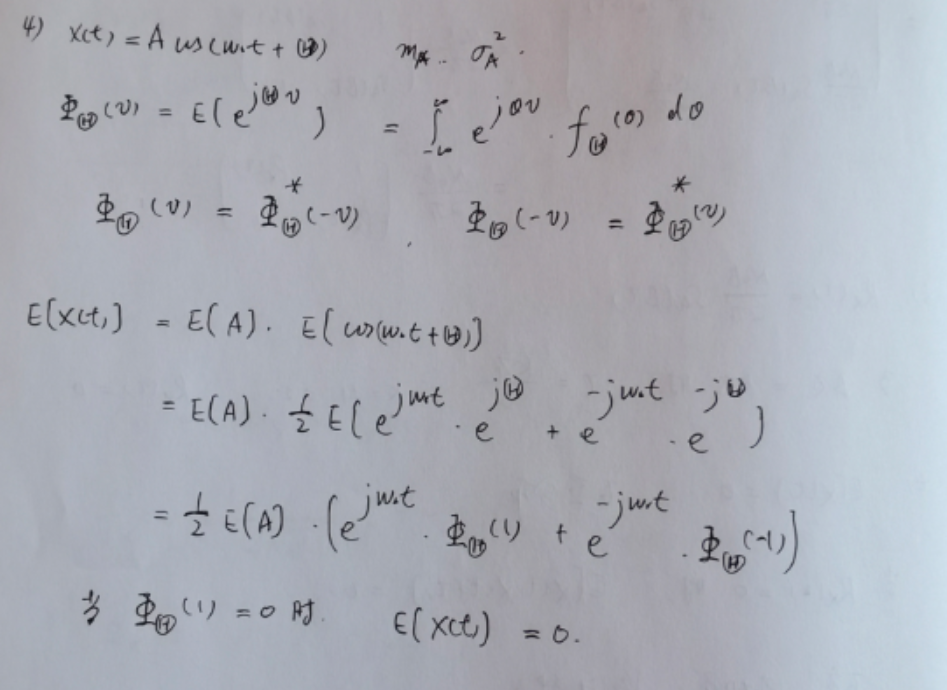 4) X(t) = A cos(ω₀t + Θ) m_A .. σ_A² .
Φ_Θ(v) = E[e^{jΘv}] = ∫_{-∞}^{∞} e^{jθv} · f_Θ(θ) dθ
Φ_Θ(v) = Φ*_Θ(-v) . Φ_Θ(-v) = Φ*_Θ(v)
E[X(t)] = E(A) · E[cos(ω₀t + Θ)]
= E(A) · 1/2 E[e^{jω₀t} · e^{jΘ} + e^{-jω₀t} · e^{-jΘ}]
= 1/2 E(A) · (e^{jω₀t} · Φ_Θ(1) + e^{-jω₀t} · Φ_Θ(-1))
当 Φ_Θ(1) = 0 时. E[X(t)] = 0.